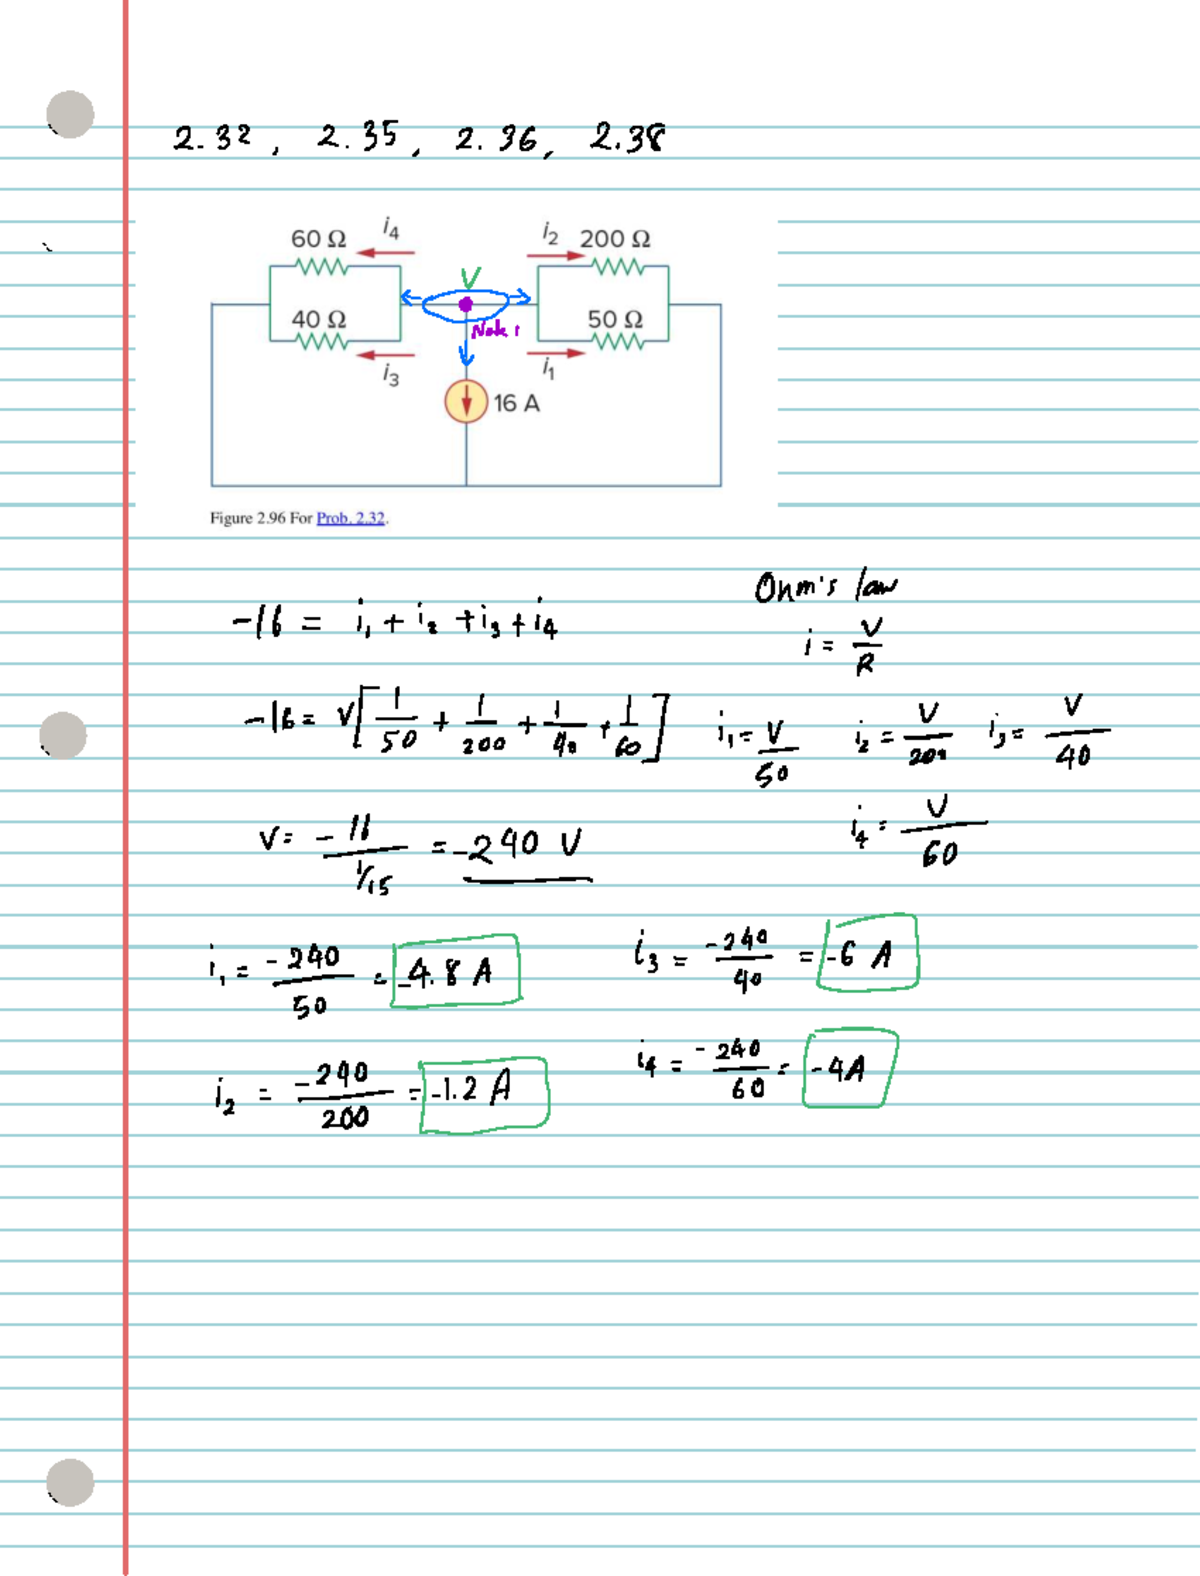 2.32, 2.35, 2.36, 2.38
60 Ω i4 i2 200 Ω
V
40 Ω 50 Ω
Node 1
i3 i1
16 A
Figure 2.96 For Prob. 2.32.
Ohm's law
-16 = i1 + i2 + i3 + i4
i = V/R
-16 = V[1/50 + 1/200 + 1/40 + 1/60] i1 = V/50 i2 = V/200 i3 = V/40
V = -16 / 1/15 = -240 V i4 = V/60
i1 = -240/50 = -4.8 A i3 = -240/40 = -6 A
i2 = -240/200 = -1.2 A i4 = -240/60 = -4A